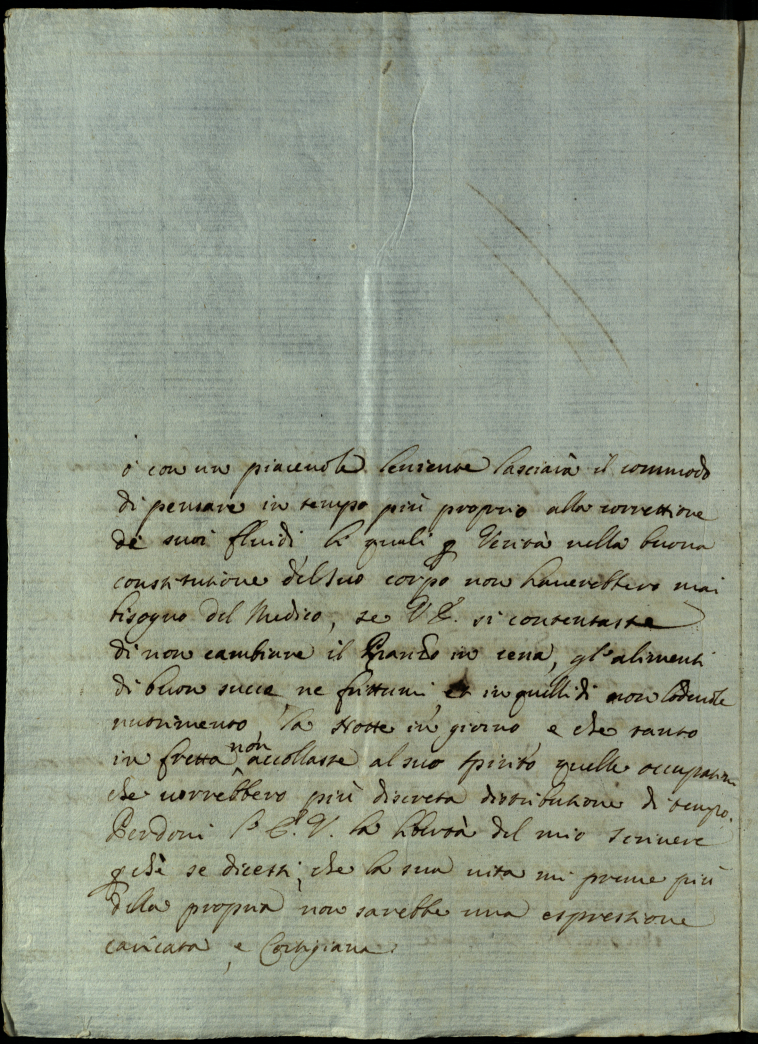 ò con un piacevole leniente lasciarà il commodo
di pensare in tempo più proprio alla correttione
de suoi fluidi, li quali p Verità nella buona
constitutione del suo corpo non haverebbero mai
bisogno del Medico, se V E. si contentasse
di non cambiare il Pranzo in cena, gl'alimenti
di buon succo ne fruttumi et in quelli di non lodevole
nutrimento, la Notte in giorno e che tanto
in fretta non accollasse al suo spirito quelle occupationi
che vorrebbero più discreta distributione di tempo.
Perdoni l' E. V. la libertà del mio scrivere
p chè se dicessi, che la sua vita mi preme più
della propria non sarebbe una espressione
caricata, e Cortigiana.